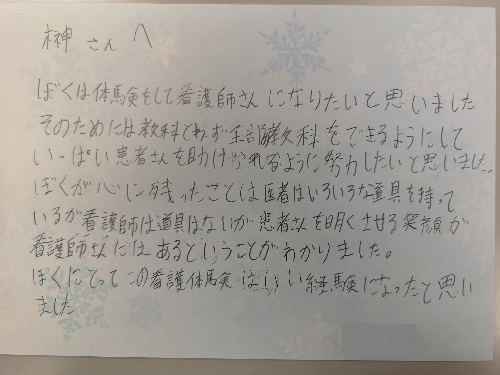 榊さんへ
ぼくは体験をして看護師さんになりたいと思いました
そのためには教科とわず全部教科をできるようにして
いっぱい患者さんを助けられるように努力したいと思いました。
ぼくが心に残ったことは医者はいろいろな道具を持って
いるが看護師は道具はないが患者さんを明くさせる笑顔が
看護師さんにはあるということがわかりました。
ぼくにとってこの看護体験はいい経験になったと思い
ました